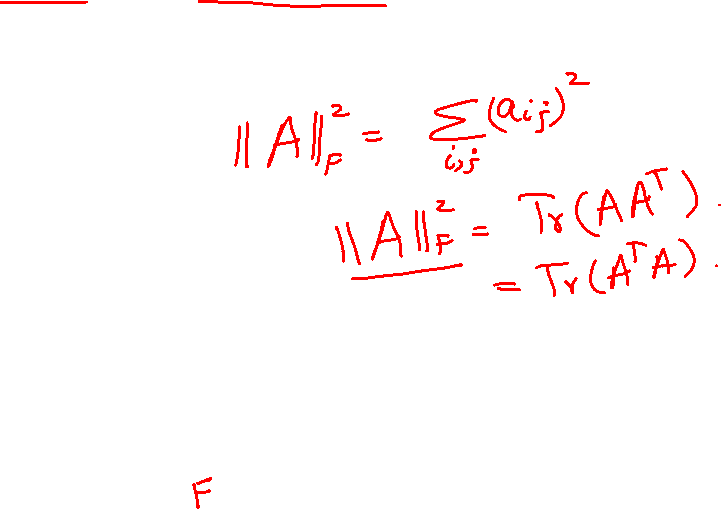 ‖A‖_F^2 = ∑_{i,j} (a_{ij})^2
‖A‖_F^2 = Tr(AA^T).
= Tr(A^TA).
F